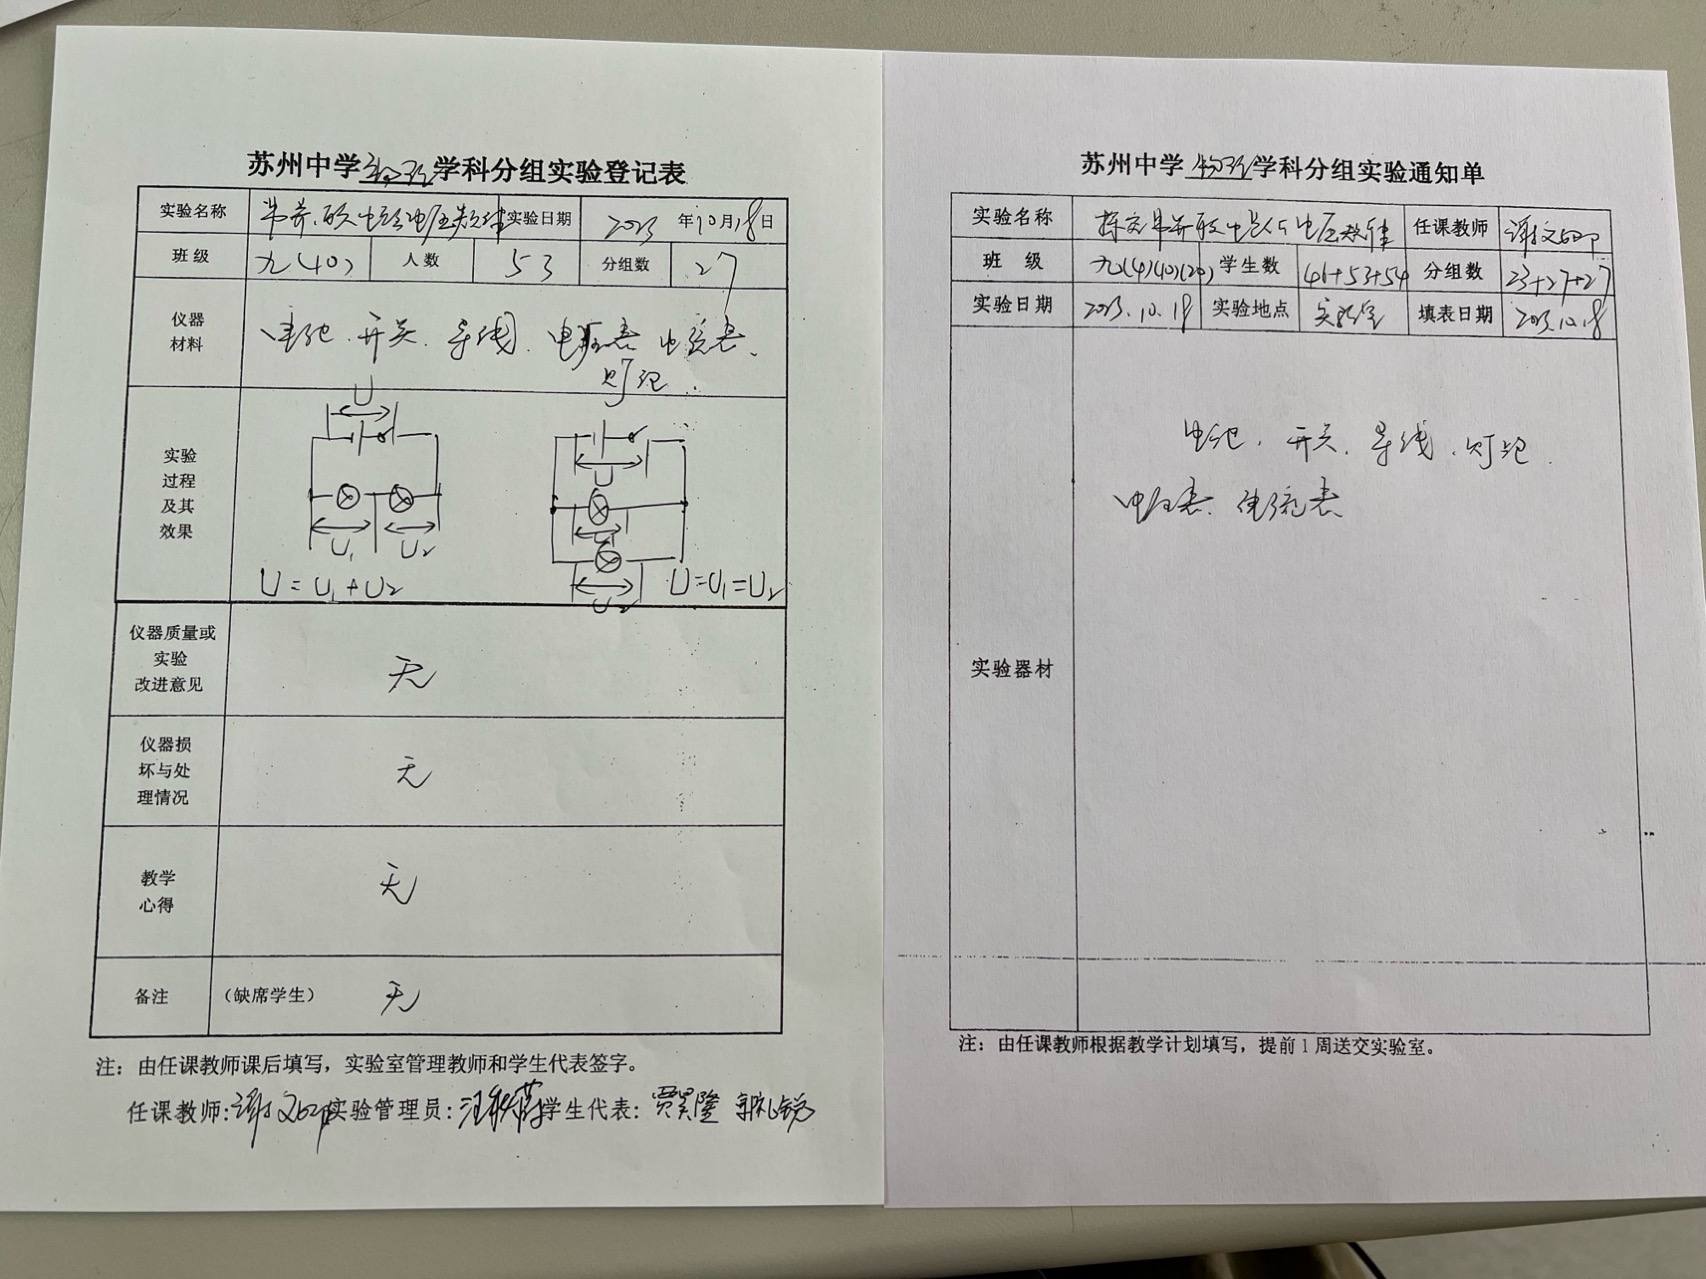 苏州中学物理学科分组实验登记表
实验名称 串并联电路电压规律 实验日期 2023年10月18日
班级 九(10) 人数 53 分组数 27
仪器
材料
电池、开关、导线、电压表、电流表、
灯泡.
实验
过程
及其
效果
U
U₁ U₂
U=U₁+U₂
U
U₁
U₂
U=U₁=U₂
仪器质量或
实验
改进意见
无
仪器损
坏与处
理情况
无
教学
心得
无
备注 (缺席学生) 无
注：由任课教师课后填写，实验室管理教师和学生代表签字。
任课教师: 谢文 实验管理员: 学生代表: 贾昊隆
苏州中学物理学科分组实验通知单
实验名称 探究串并联电路电压规律 任课教师 谢文
班 级 九(4)(10)(20) 学生数 46+53+54 分组数 23+27+27
实验日期 2023.10.18 实验地点 实验室 填表日期 2023.10.18
实验器材
电池、开关、导线、灯泡.
电压表、电流表
注：由任课教师根据教学计划填写，提前1周送交实验室。